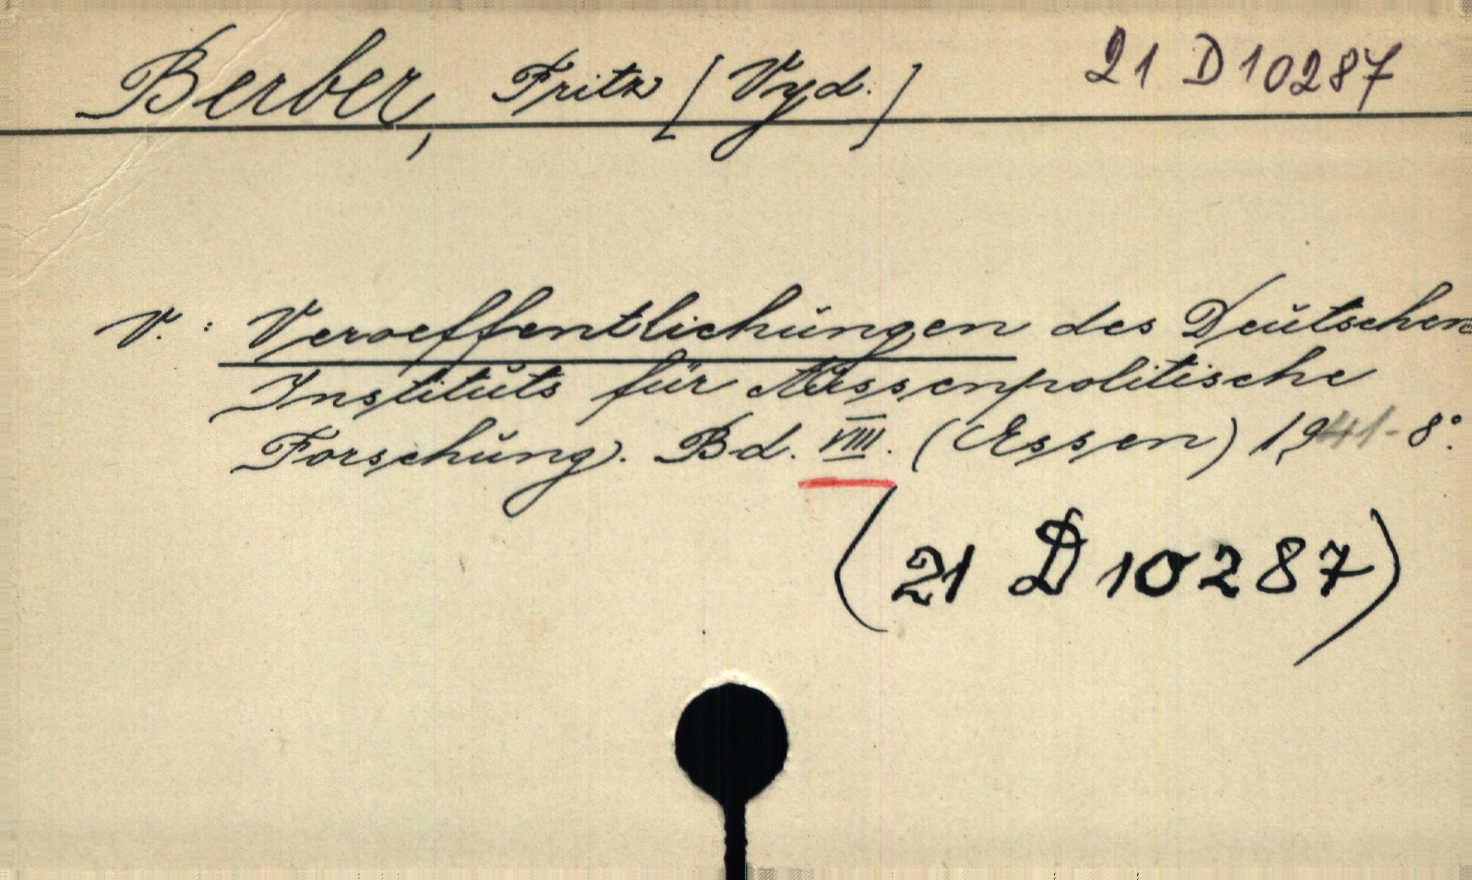 Berber, Fritz [Vyd.] 21 D 10287
V.: Veroeffentlichŭngen des Deŭtschen
Institŭts für Aŭssenpolitische
Forschŭng. Bd. VIII. (Essen) 1941- 8°.
(21 D 10287)